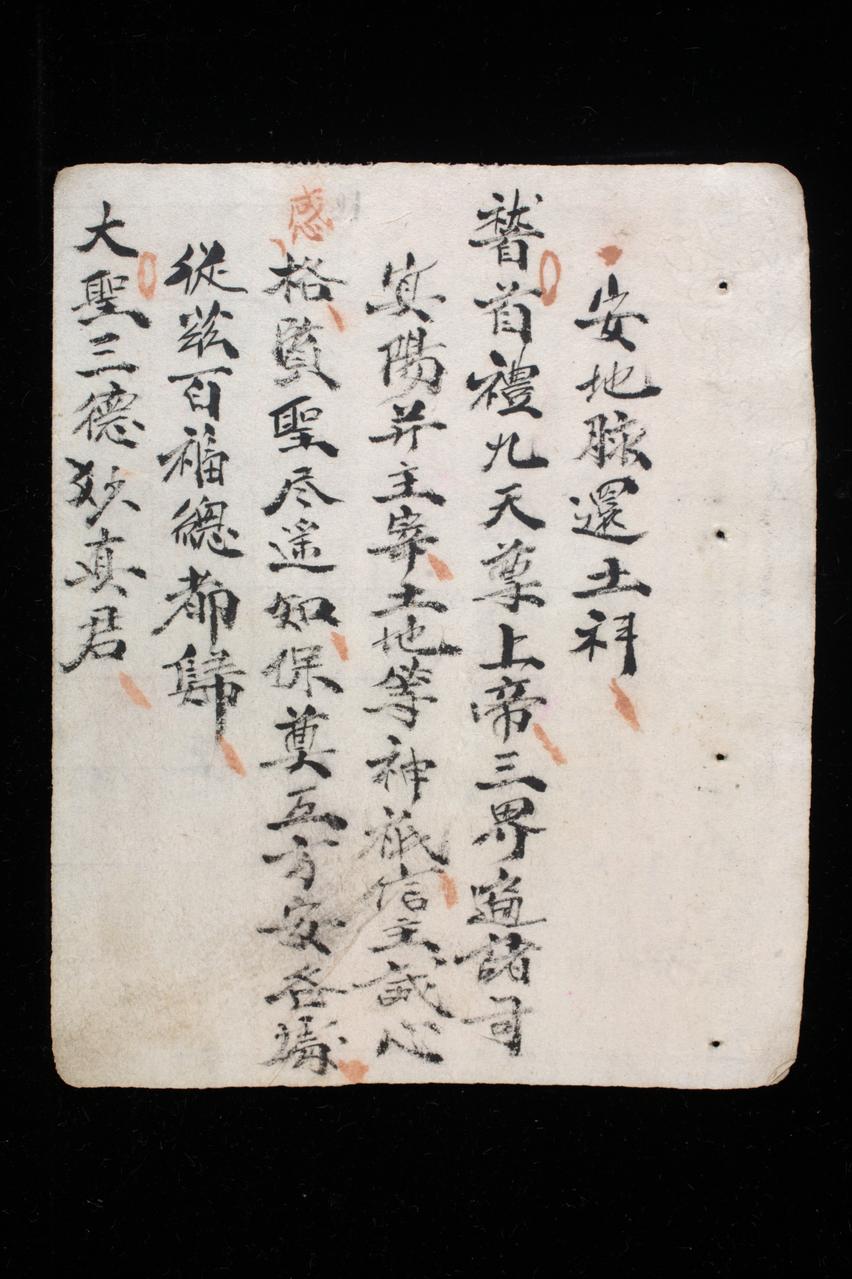 安地脉還土科
稽首禮九天尊上帝三界遍諸司
冥陽并主宰土地等神祇信主誠心
感格賢聖尽遥知保奠五方安各
從兹百福總都歸
大聖三德妙真君